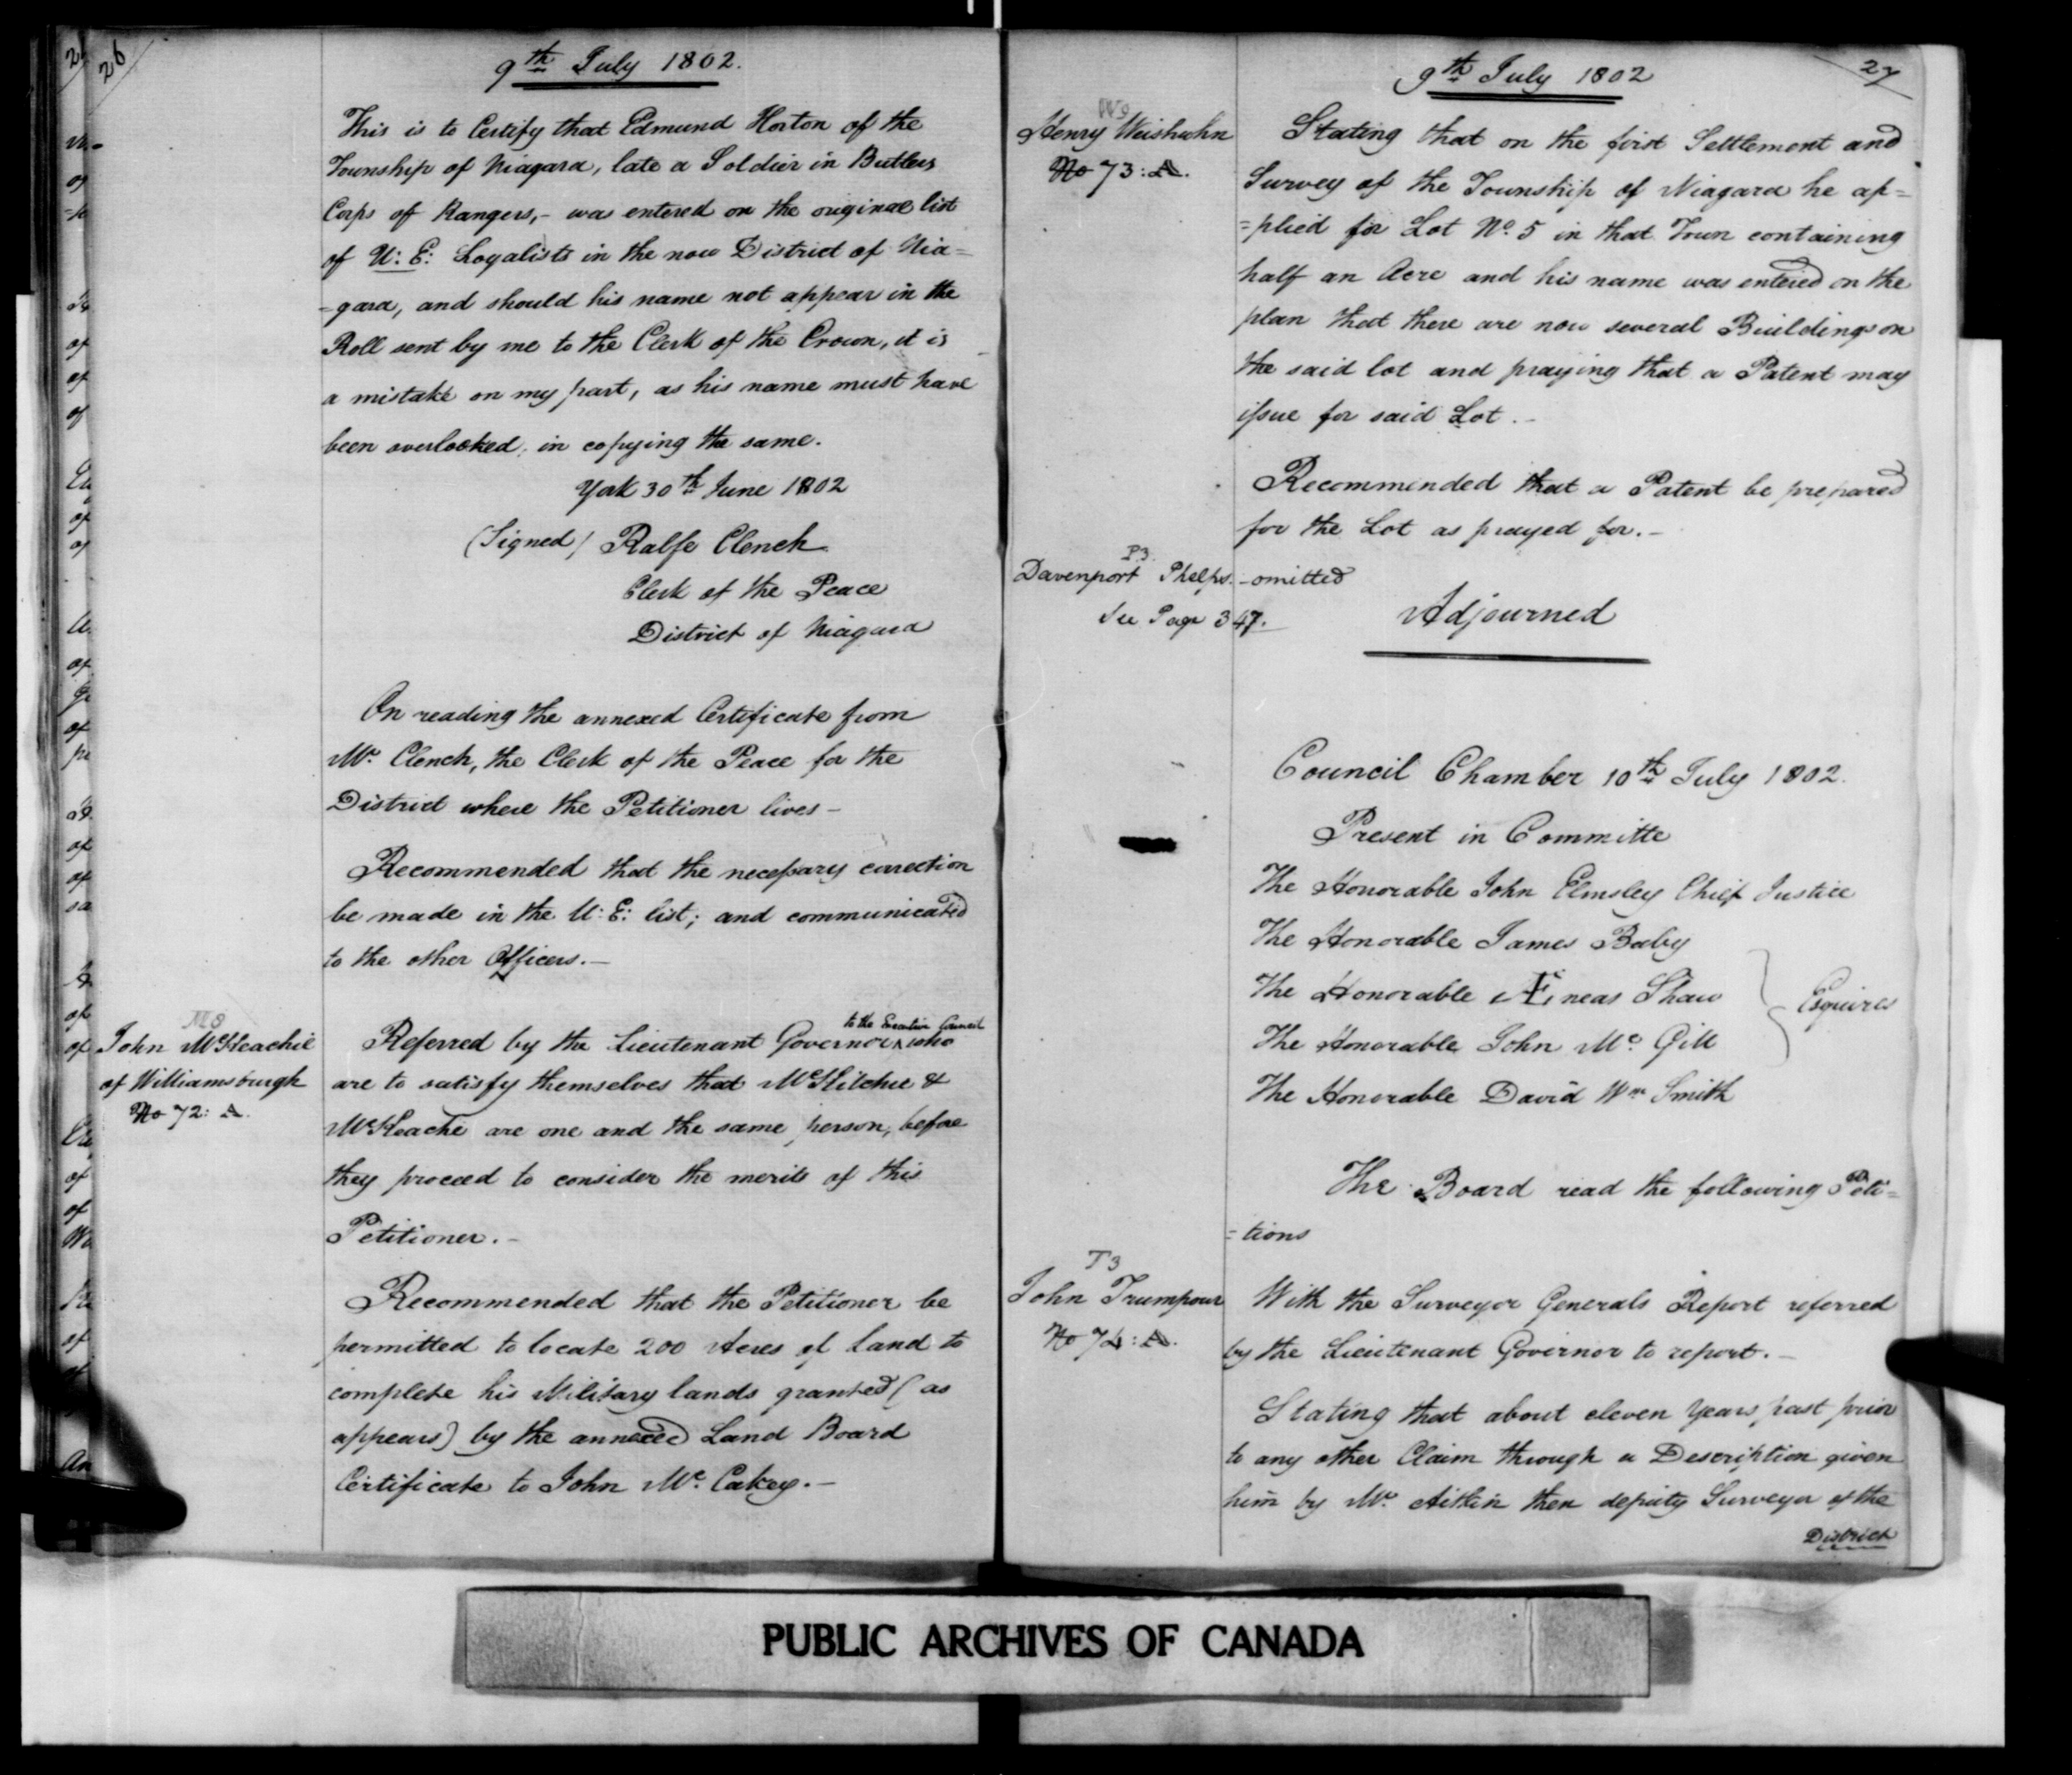 26
9th July 1802.
This is to Certify that Edmund Horton of the
Township of Niagara, late a Soldier in Butlers
Corps of Rangers,- was entered on the original list
of U: E: Loyalists in the now District of Nia=
=gara, and should his name not appear in the
Roll sent by me to the Clerk of the Crown, it is
a mistake on my part, as his name must have
been overlooked, in copying the same.
York 30th June 1802
(Signed) Ralfe Clench
Clerk of the Peace
District of Niagara
On reading the annexed Certificate from
Mr. Clench, the Clerk of the Peace for the
District where the Petitioner lives-
Recommended that the necessary correction
be made in the U: E: list; and communicated
to the other Officers.-
M8
John McKeachie
of Williamsburgh
No 72: A.
to the Executive Council
Referred by the Lieutenant Governor ^ who
are to satisfy themselves that McKitchie &
McKeache are one and the same person, before
they proceed to consider the merits of this
Petitioner.-
Recommended that the Petitioner be
permitted to locate 200 Acres of Land to
complete his Military lands granted (as
appears) by the annexed Land Board
Certificate to John Mc. Cakey.-
9th July 1802
27
W3
Henry Weishuhn
No 73: A.
Stating that on the first Settlement and
Survey of the Township of Niagara he ap=
=plied for Lot No. 5 in that Town containing
half an Acre and his name was entered on the
plan that there are now several Buildings on
the said lot and praying that a Patent may
issue for said Lot.-
Recommended that a Patent be prepared
for the Lot as prayed for.-
P3.
Davenport Phelps.-omitted
See Page 347.
Adjourned
Council Chamber 10th July 1802.
Present in Committe
The Honorable John Elmsley Chief Justice
The Honorable James Baby
The Honorable Æneas Shaw
Esquires
The Honorable John Mc. Gill
The Honorable David Wm Smith
The Board read the following Peti=
=tions
T3
John Trumpour
No 74: A.
With the Surveyor Generals Report referred
by the Lieutenant Governor to report.-
Stating that about eleven Years past prior
to any other Claim through a Description given
him by Mr. Aitkin then deputy Surveyor of the
District
PUBLIC ARCHIVES OF CANADA